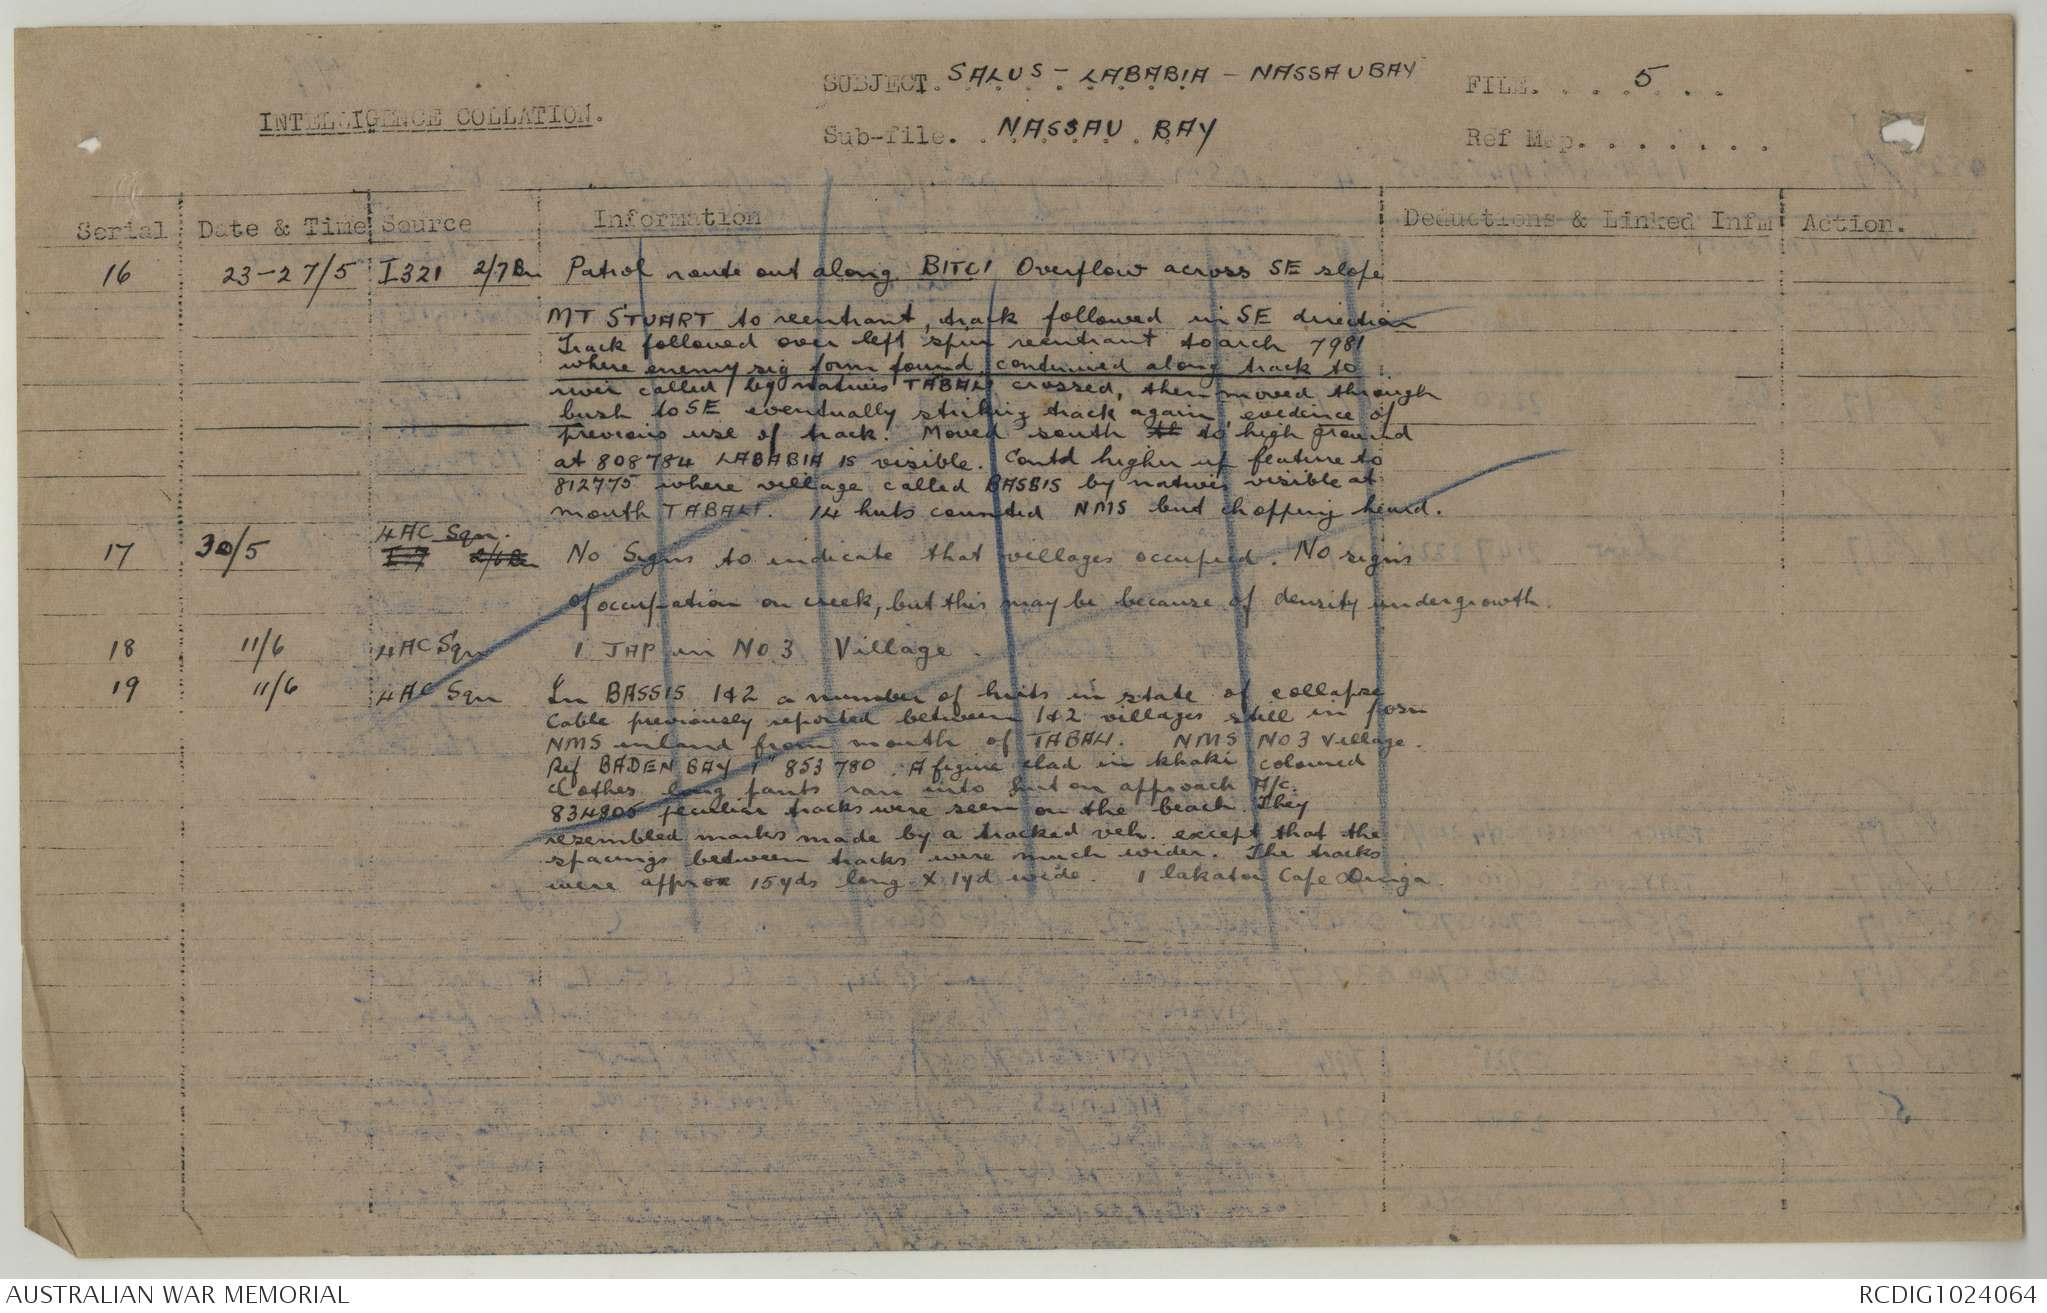 SUBJECT. SALUS - LABABIA - NASSAU BAY FILE. . . . 5 . . .
INTELLIGENCE COLLATION.
Sub-file. . NASSAU BAY Ref Map. . . . . . .
Serial Date & Time Source Information Deductions & Linked Infm Action.
16 23-27/5 I321 2/7 Bn Patrol route out along BITOI Overflow across SE slope
MT STUART to reentrant, track followed in SE direction
Track followed over left spur reentrant to arch 7981
where enemy sig form found, continued along track to
river called by natives TABALI crossed, then moved through
bush to SE eventually striking track again evidence of
previous use of track. Moved south to high ground
at 808784 LABABIA is visible. Contd higher up feature to
812775 where village called BASSIS by natives visible at
mouth TABALI. 14 huts counted NMS but chopping heard.
4 AC Sqn.
17 30/5 2/6 Bn No Signs to indicate that villages occupied. No signs
of occupation on creek, but this may be because of density undergrowth.
18 11/6 4 AC Sqn 1 JAP in No 3 Village.
19 11/6 4 AC Sqn In BASSIS 1&2 a number of huts in state of collapse
Cable previously reported between 1&2 villages still in posn
NMS inland from mouth of TABALI. NMS NO 3 Village.
Ref BADEN BAY 1" 853780. A figure clad in khaki coloured
Clothes long pants ran into hut on approach A/c.
834805 peculiar tracks were seen on the beach. They
resembled marks made by a tracked veh. except that the
spacings between tracks were much wider. The tracks
were approx 15yds long X 1yd wide. 1 lakatoi Cape Dinga.
AUSTRALIAN WAR MEMORIAL RCDIG1024064